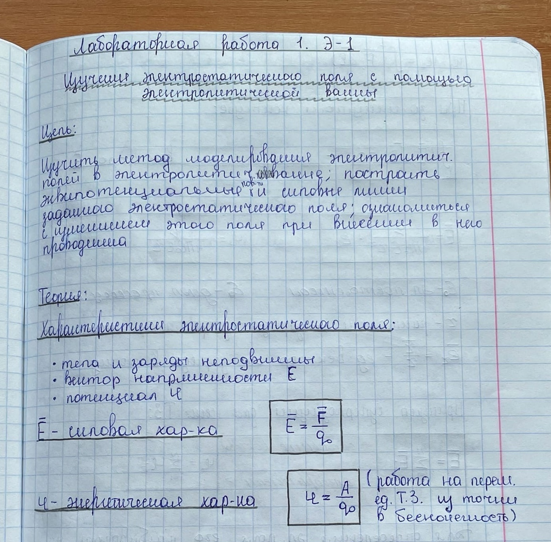 Лабораторная работа 1. Э-1
Изучение электростатического поля с помощью
электролитической ванны
Цель:
Изучить метод моделирования электролитич.
полей в электролитич. ванне; построить
эквипотенциальные пов. и силовые линии
заданного электростатического поля; ознакомиться
с изменением этого поля при внесении в него
проводника
Теория:
Характеристики электростатического поля:
• тела и заряды неподвижны
• вектор напряженности E
• потенциал φ
E̅ - силовая хар-ка E̅ = F̅/q₀
φ - энергетическая хар-ка φ = A/q₀ (работа на перем.
ед. Т.З. из точки
в бесконечность)